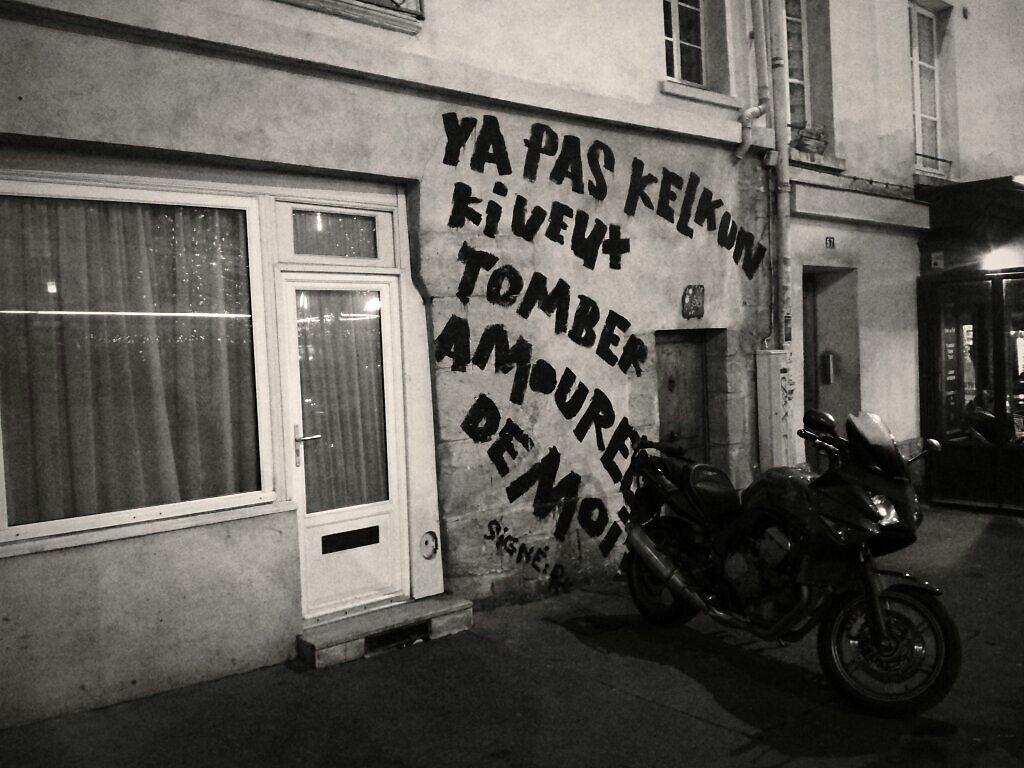 YA PAS KELKUN
Ki VEUt
TOMBER
AMOUREU
DE MOi
SiGNÉ: R
57